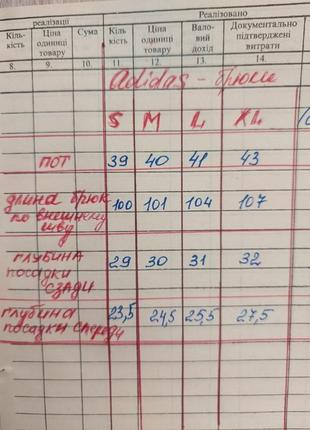 реалізації
Реалізовано
Кіль-
кість
Ціна
одиниці
товару
Сума
Кіль
кість
Ціна
одиниці
товару
Вало-
вий
дохід
Документально
підтверджені
витрати
8. 9. 10. 11. 12. 13. 14.
Adidas - брюки
S M L XL
ПОТ 39 40 41 43
длина брюк
по внешнему
шву
100 101 104 107
глубина
посадки
сзади
29 30 31 32
глубина
посадки спереди
23,5 24,5 25,5 27,5